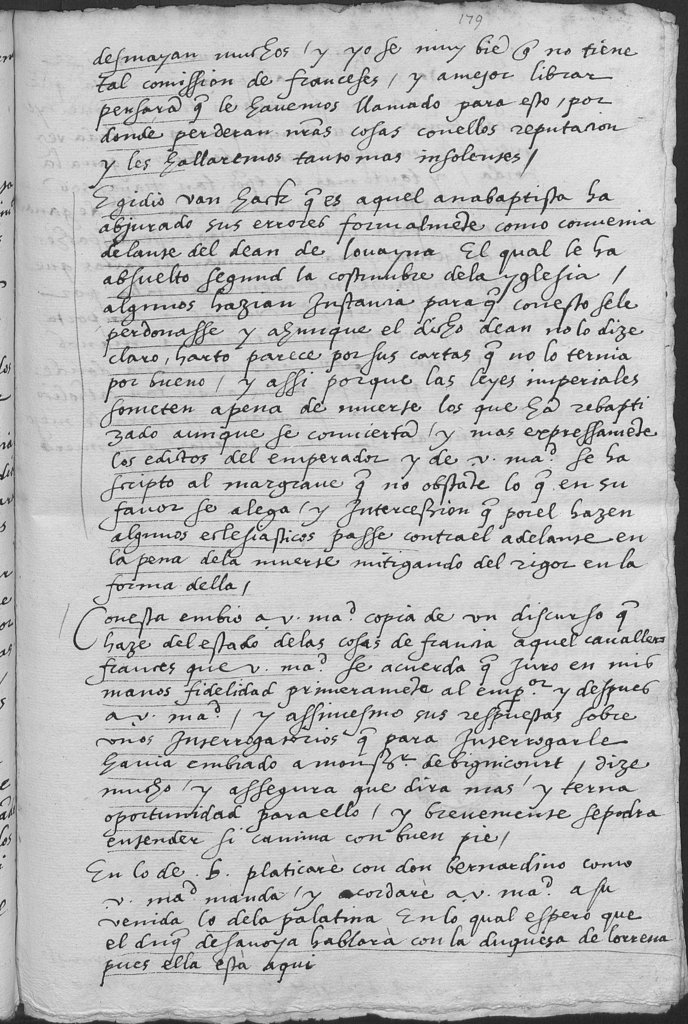 179
desmayan muchos / y yo se muy biē q̄ no tiene
tal comission de franceses, y amejor librar
pensarā q̄ le havemos llamado para esto, por
donde perderan nr̄as cosas conellos reputacion
y les hallaremos tantomas insolentes /
Egidio van hack q̄ es aquel anabaptista ha
abjurado sus errores formalmēte como convenia
delante del dean de lovayna El qual le ha
absuelto segund la costumbre dela yglesia /
algunos hazian Instancia para q̄ conesto sele
perdonasse y ahunque el dicho dean no lo dize
claro, harto parece por sus cartas q̄ no lo ternia
por bueno, y assi porque las leyes imperiales
someten apena de muerte los que hā rebapti
zado aunque se conviertā / y mas expressamēte
los edictos del emperador y de v. mad. se ha
scripto al margrave q̄ no obstāte lo q̄ en su
favor se alega / y Intercession q̄ porel hazen
algunos eclesiasticos passe contrael adelante en
la pena dela muerte mitigando del rigor en la
forma della /
Conesta embio a v. mad. copia de un discurso q̄
haze del estado delas cosas de francia aquel cavallero
frances que v. mad. se acuerda q̄ Juro en mis
manos fidelidad primeramēte al emp.or y despues
a v. mad. / y assimesmo sus respuestas sobre
unos Interrogatorios q̄ para Interrogarle
havia embiado a mons.r de bignicourt, dize
mucho / y assegura que dira mas / y terna
oportunidad para ello / y brevemente sepodra
entender si camina con buen pie /
En lo de .b. platicarè con don bernardino como
v. mad. manda / y acordarè a v. mad. a su
venida lo dela palatina En lo qual espero que
el duq̄ de savoya hablarà con la duquesa de lorrena
pues ella està aqui